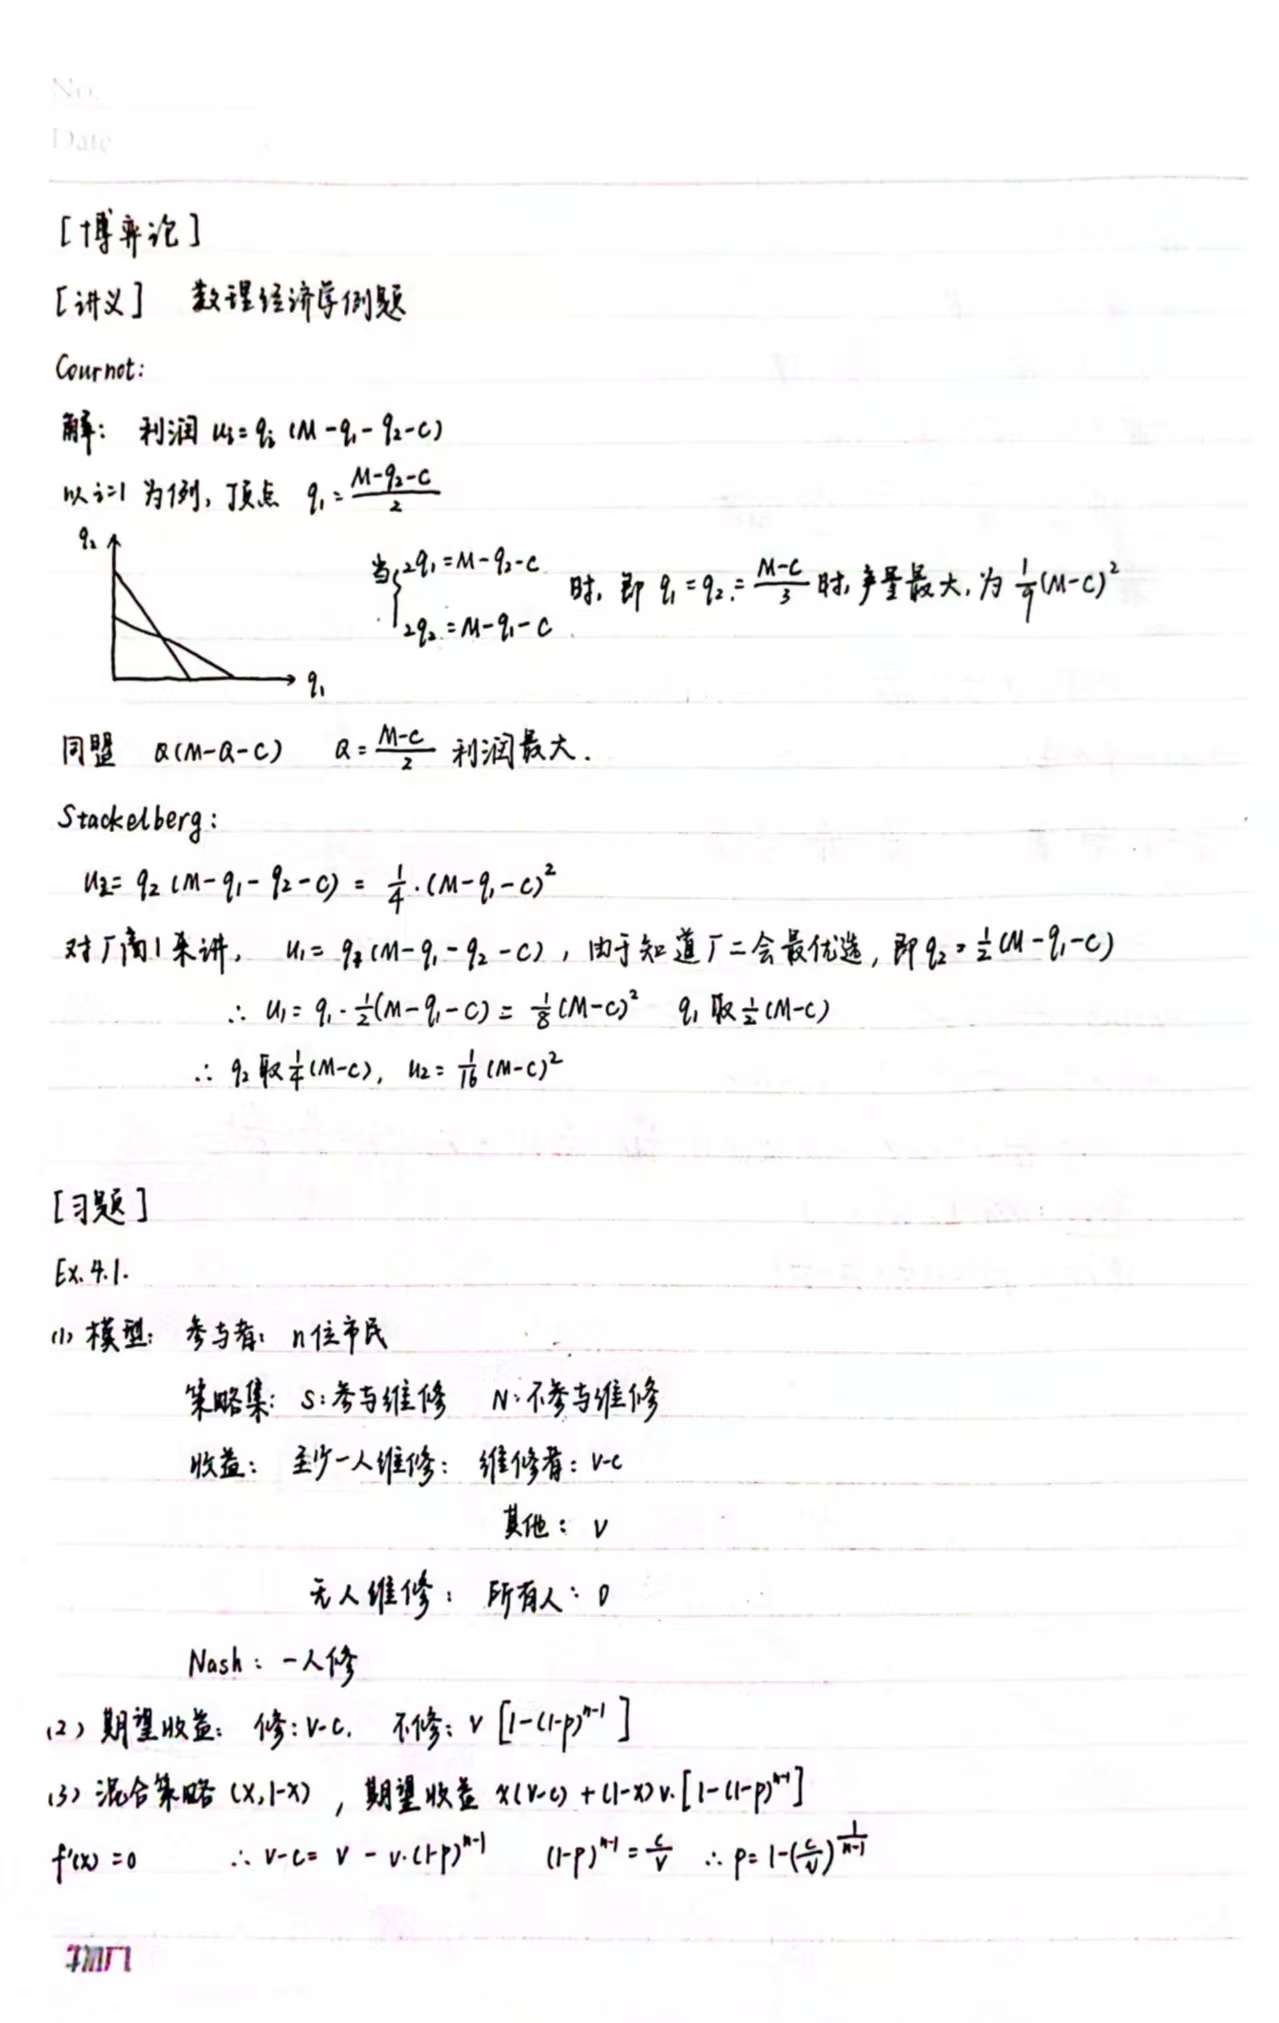 No.
Date
[博弈论]
[讲义] 数理经济学例题
Cournot:
解: 利润 uᵢ = qᵢ (M-q₁-q₂-c)
以 i=1 为例, 顶点 q₁ = (M-q₂-c)/2
q₂
当{2q₁=M-q₂-c
2q₂=M-q₁-c
时, 即 q₁=q₂=(M-c)/3 时, 产量最大, 为 1/9(M-c)²
q₁
同盟 Q(M-Q-c) Q=(M-c)/2 利润最大.
Stackelberg:
u₂= q₂ (M-q₁-q₂-c) = 1/4·(M-q₁-c)²
对厂商1来讲, u₁= q₁(M-q₁-q₂-c), 由于知道厂二会最优选, 即q₂=1/2(M-q₁-c)
∴ u₁= q₁·1/2(M-q₁-c) = 1/8(M-c)² q₁取1/2(M-c)
∴ q₂取1/4(M-c), u₂= 1/16(M-c)²
[习题]
Ex.4.1.
(1) 模型: 参与者: n位市民
策略集: S:参与维修 N:不参与维修
收益: 至少一人维修: 维修者: v-c
其他: v
无人维修: 所有人: 0
Nash: 一人修
(2) 期望收益: 修: v-c. 不修: v [1-(1-p)ⁿ⁻¹]
(3) 混合策略 (x,1-x), 期望收益 x(v-c)+(1-x)v·[1-(1-p)ⁿ⁻¹]
f'(x)=0 ∴ v-c= v - v·(1-p)ⁿ⁻¹ (1-p)ⁿ⁻¹=c/v ∴ p=1-(c/v)^(1/(n-1))